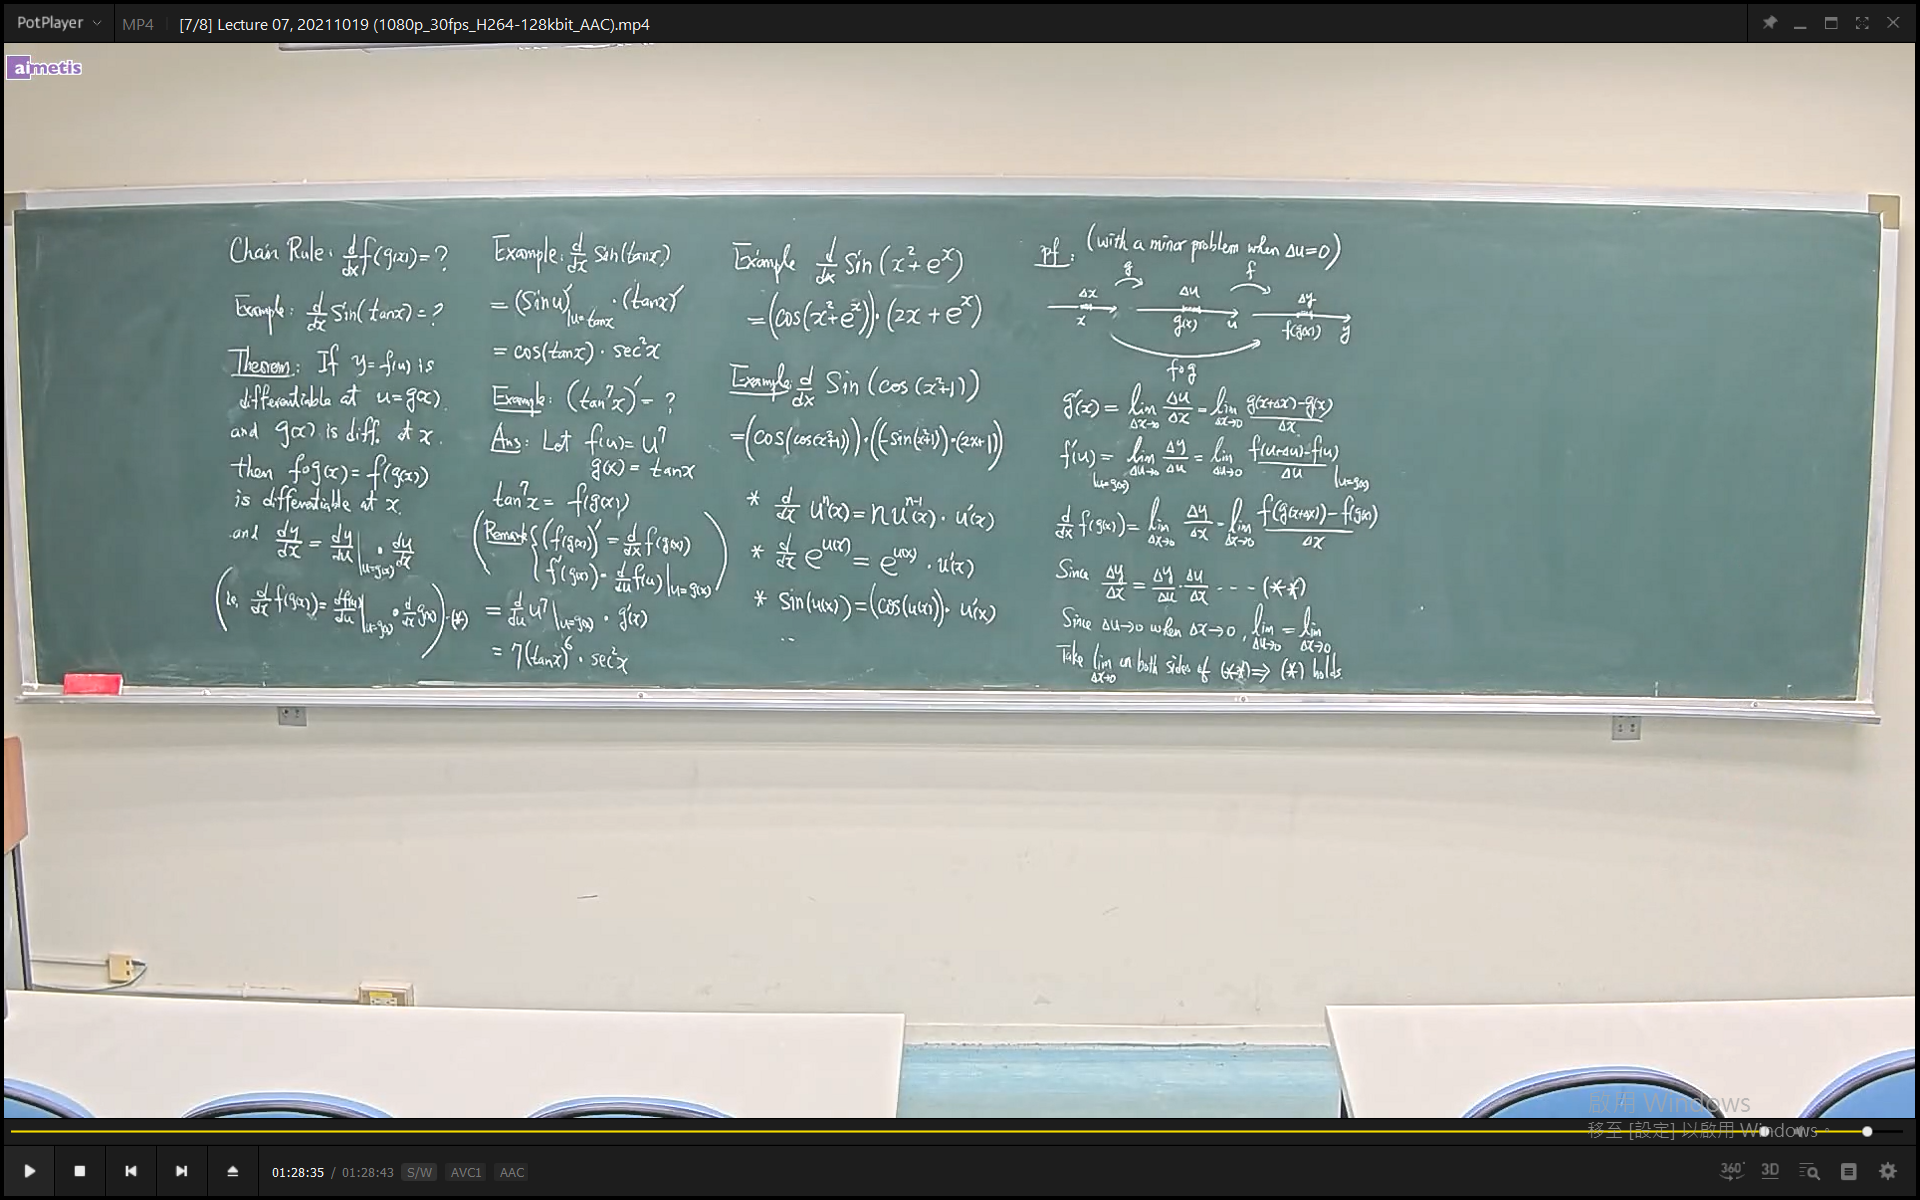 PotPlayer
MP4
[7/8] Lecture 07, 20211019 (1080p_30fps_H264-128kbit_AAC).mp4
aimetis
Chain Rule: d/dx f(g(x)) = ?
Example: d/dx Sin(tanx) = ?
Theorem: If y=f(u) is
differentiable at u=g(x).
and g(x) is diff. at x.
then f∘g(x) = f(g(x))
is differentiable at x.
and dy/dx = dy/du |u=g(x) · du/dx
(i.e. d/dx f(g(x)) = df(u)/du |u=g(x) · d/dx g(x)) -(*)
Example: d/dx Sin(tanx)
= (Sin u)' |u=tanx · (tanx)'
= cos(tanx) · sec²x
Example: (tan⁷x)' = ?
Ans: Let f(u) = u⁷
g(x) = tanx
tan⁷x = f(g(x))
(Remark { (f(g(x)))' = d/dx f(g(x))
f'(g(x)) = d/du f(u) |u=g(x) )
= d/du u⁷ |u=g(x) · g'(x)
= 7(tanx)⁶ · sec²x
Example d/dx Sin(x²+eˣ)
= (cos(x²+eˣ)) · (2x + eˣ)
Example: d/dx Sin(cos(x²+1))
= (cos(cos(x²+1)) · ((-sin(x²+1)) · (2x+1))
* d/dx uⁿ(x) = n uⁿ⁻¹(x) · u'(x)
* d/dx e^u(x) = e^u(x) · u'(x)
* Sin(u(x)) = (cos(u(x)) · u'(x)
..
pf: (with a minor problem when Δu=0)
g f
Δx Δu Δy
x g(x) u f(g(x)) y
f∘g
g'(x) = lim Δx→0 Δu/Δx = lim Δx→0 g(x+Δx)-g(x)/Δx
f'(u) |u=g(x) = lim Δu→0 Δy/Δu = lim Δu→0 f(u+Δu)-f(u)/Δu |u=g(x)
d/dx f(g(x)) = lim Δx→0 Δy/Δx = lim Δx→0 f(g(x+Δx))-f(g(x))/Δx
Since Δy/Δx = Δy/Δu · Δu/Δx ---- (**)
Since Δu→0 when Δx→0, lim Δu→0 = lim Δx→0
Take lim Δx→0 on both sides of (**) ⇒ (*) holds.
啟用 Windows
移至 [設定] 以啟用 Windows。
01:28:35 / 01:28:43 S/W AVC1 AAC
360° 3D